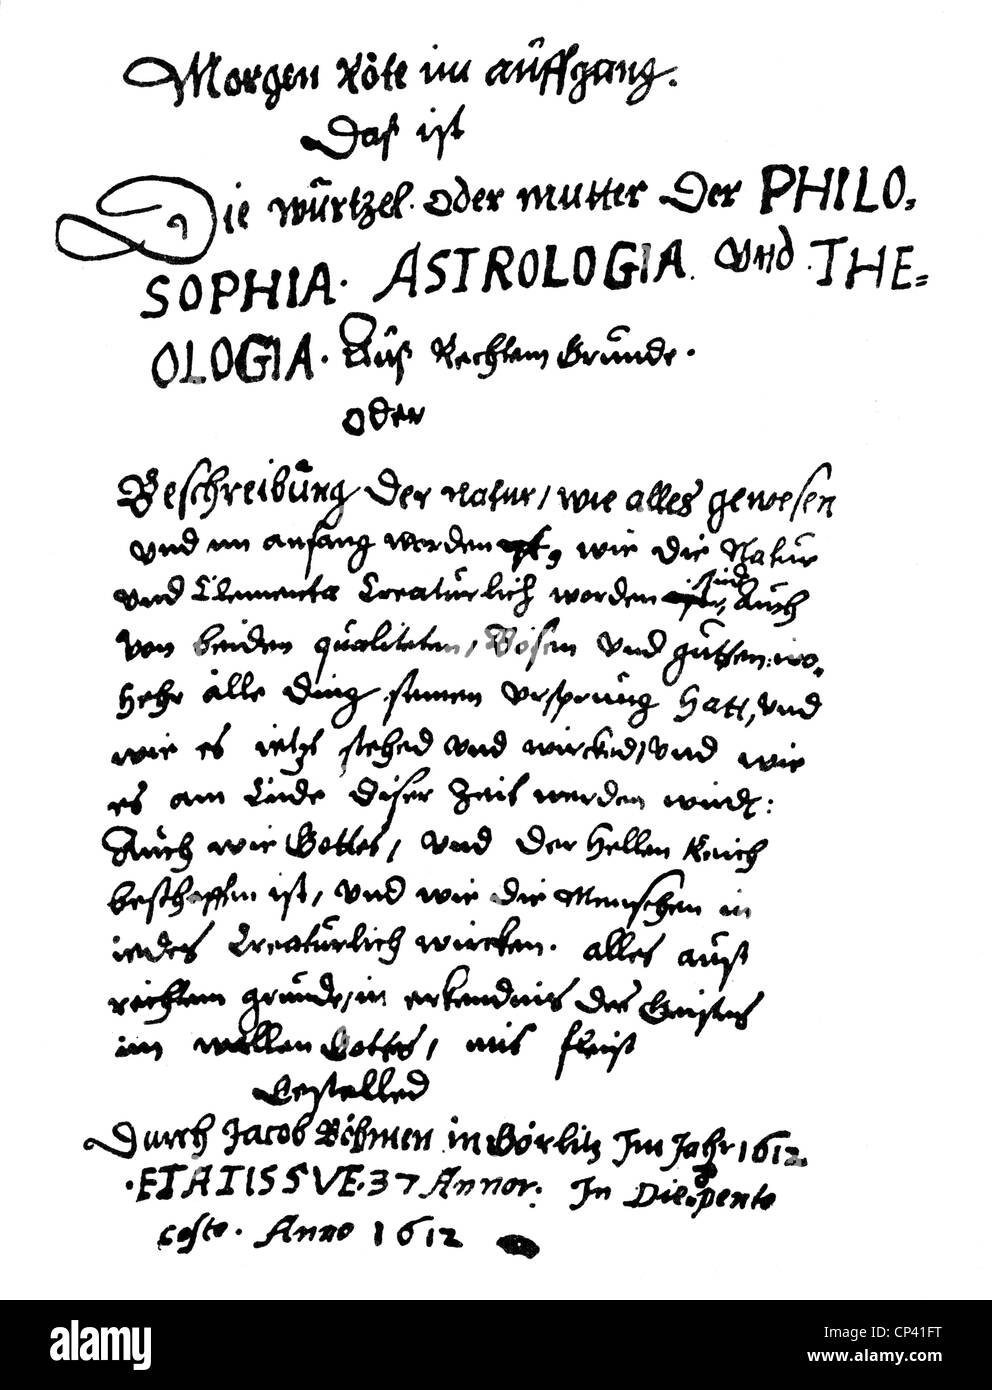 Morgen Röte im auffgang.
Das ist
Die würtzel. oder mutter Der PHILO=
SOPHIA. ASTROLOGIA. Vnd. THE=
OLOGIA. Auß Rechtem Grunde.
oder
Beschreibung Der Natur, wie alles gewesen
vnd im anfang worden, wie die Natur
vnd Elementa Creatürlich worden sind, Auch
von beiden qualiteten, Bösen Vnd gutten: wo=
hehr alle Ding seinen Vrsprung Hatt, Vnd
wie es ietzt stehed vnd wircked, Vnd wie
es am Ende Diser Zeit werden wird:
Auch wie Gottes, Vnd Der Hellen Reich
beschaffen ist, Vnd wie die Menschen in
iedes Creatürlich wircken. alles auß
rechtem grunde, in erkendnis Des Geistes
im wallen Gottes, mit fleiß
Gestelled
Durch Jacob Böhmen in Görlitz Im Jahr 1612.
.ETATISSVE. 37 Annor. In Die pente
coste. Anno 1612
alamy
a
alamy
Image ID: CP41FT
www.alamy.com